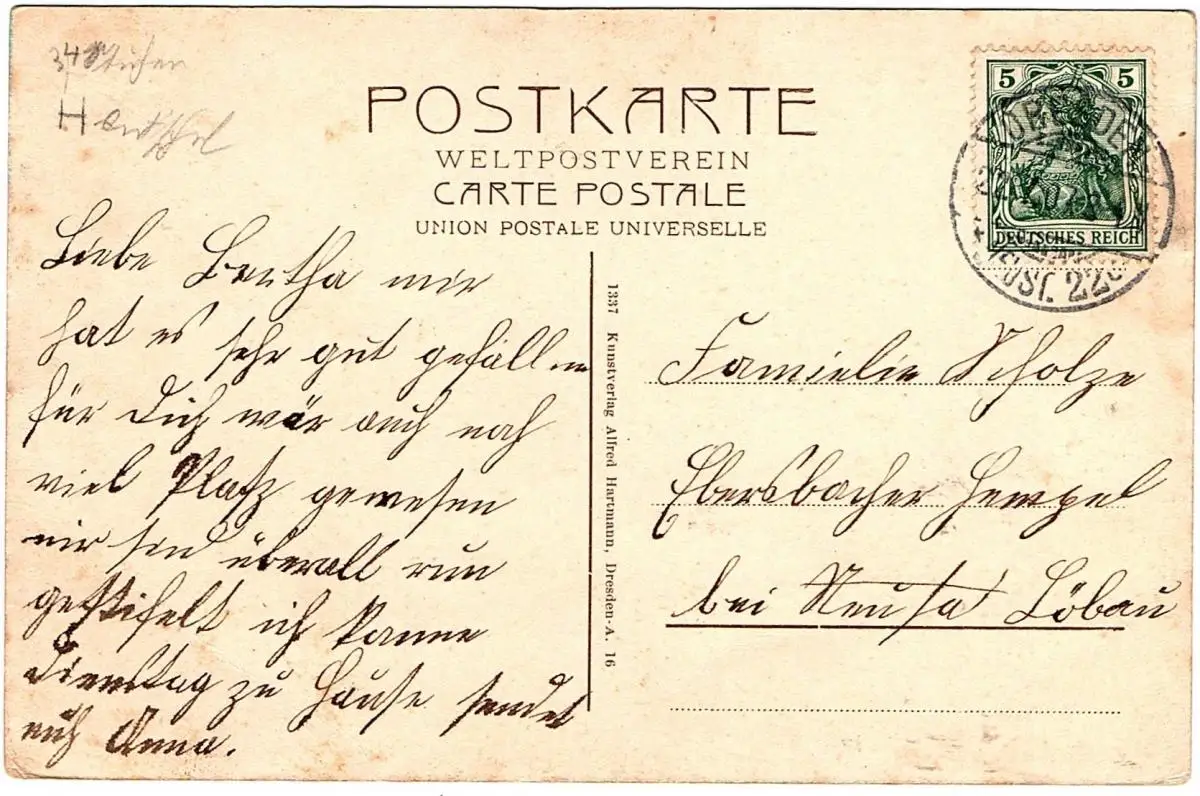 POSTKARTE
WELTPOSTVEREIN
CARTE POSTALE
UNION POSTALE UNIVERSELLE
5 5
DEUTSCHES REICH
Liebe Bertha mir
hat es sehr gut gefallen
für Dich wär auch noch
viel Platz gewesen
wir sin überall rum
gestifelt ich komme
Dienstag zu Hause sendet
euch Anna.
1337 Kunstverlag Alfred Hartmann, Dresden-A. 16
Familie Scholze
Ebersbacher
bei Neusa Löbau